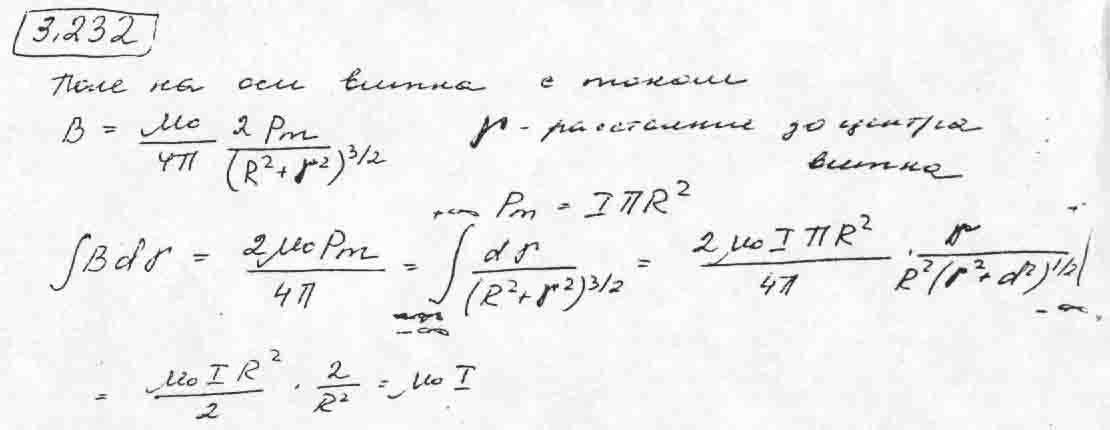 3.232
Поле на оси витка с током
B = μ₀/4π 2Pm/(R² + r²)^3/2 r - расстояние до центра
витка
Pm = IπR²
∫Bdr = 2μ₀Pm/4π = ∫_{-∞}^{+∞} dr/(R² + r²)^3/2 = 2μ₀IπR²/4π · r/R²(r² + d²)^1/2 |_{-∞}^{+}
= μ₀IR²/2 · 2/R² = μ₀I